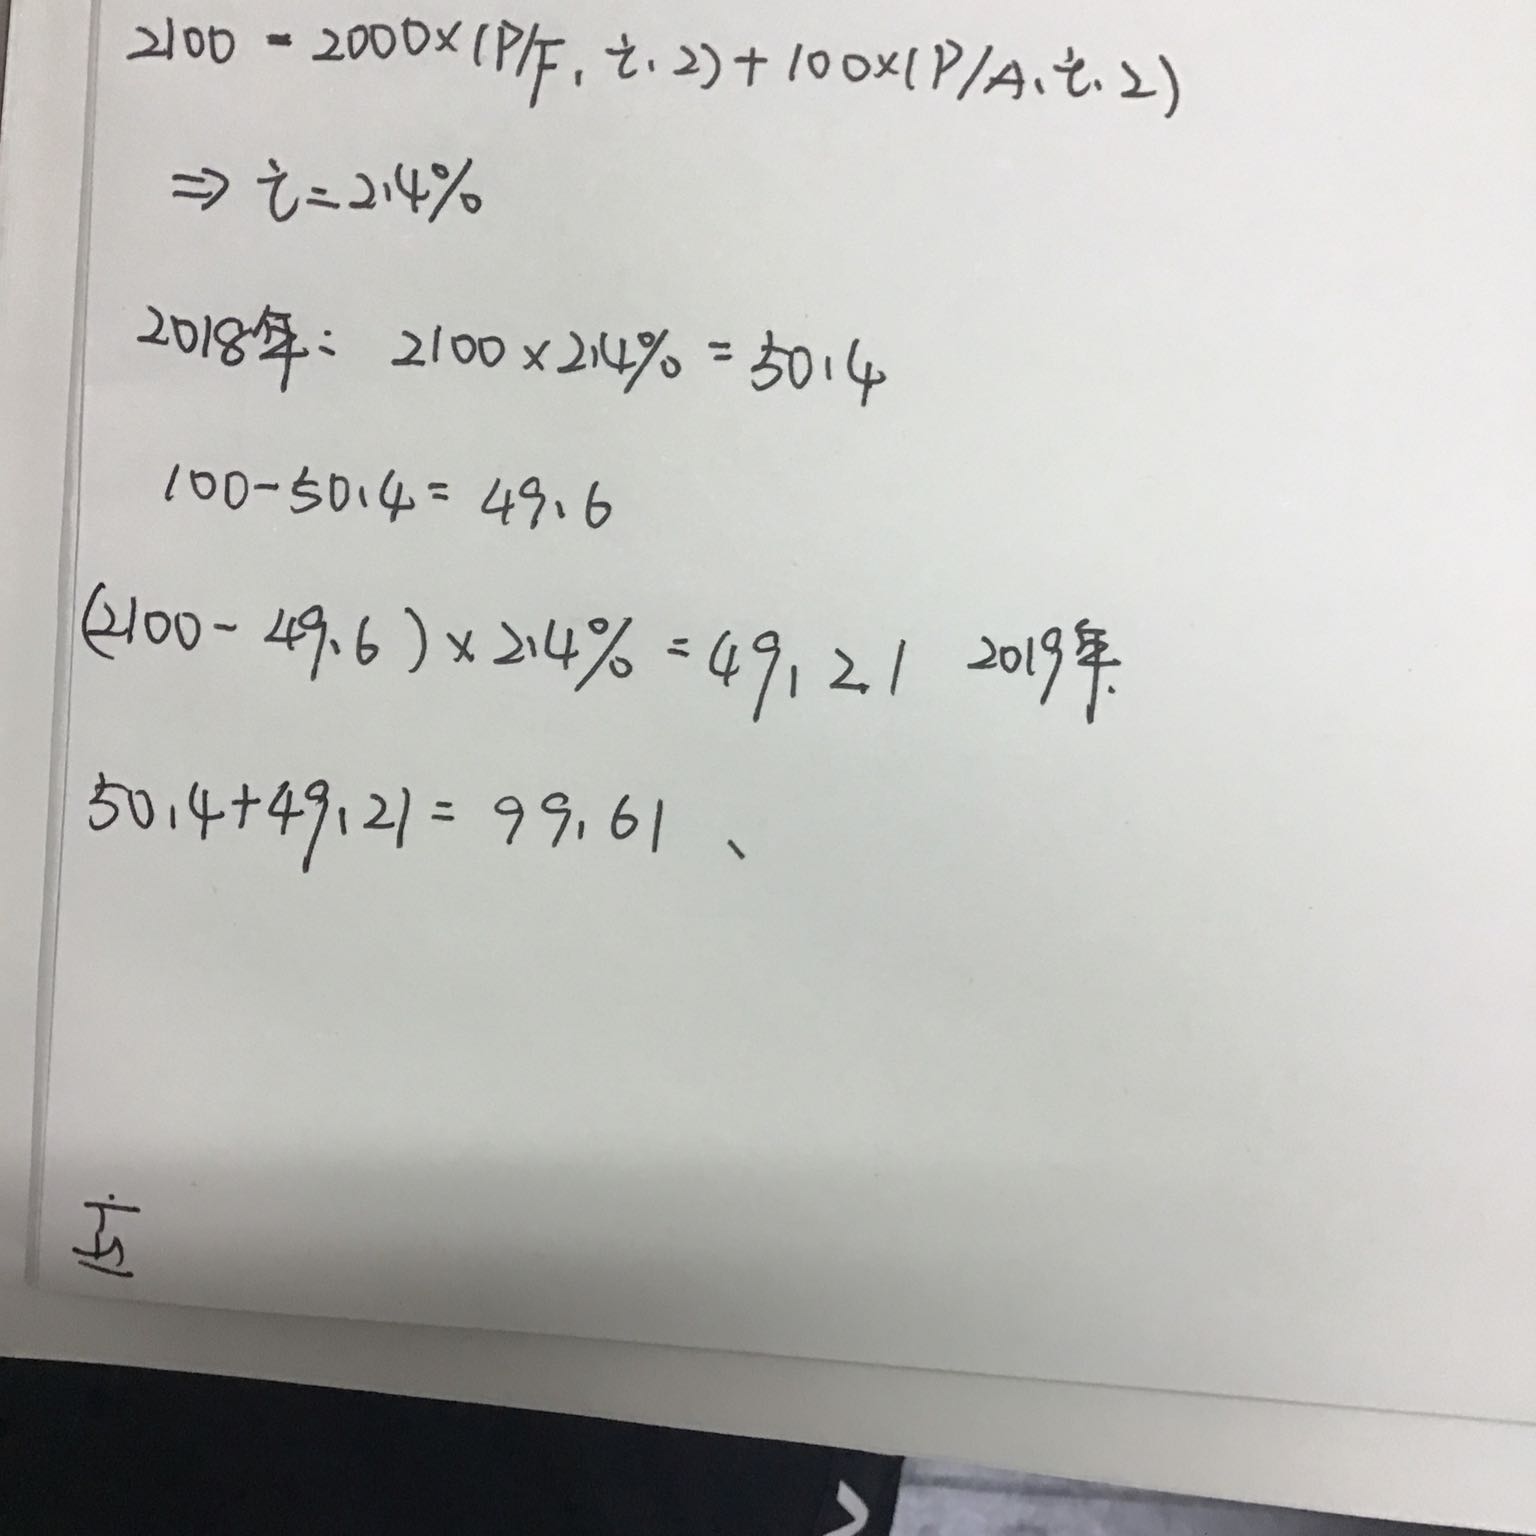 2100 = 2000×(P/F、i、2)+100×(P/A、i、2)
⇒ i=2.4%
2018年: 2100×2.4% = 50.4
100-50.4= 49.6
(2100- 49.6)×2.4% =49.21 2019年.
50.4+49.21= 99.61、